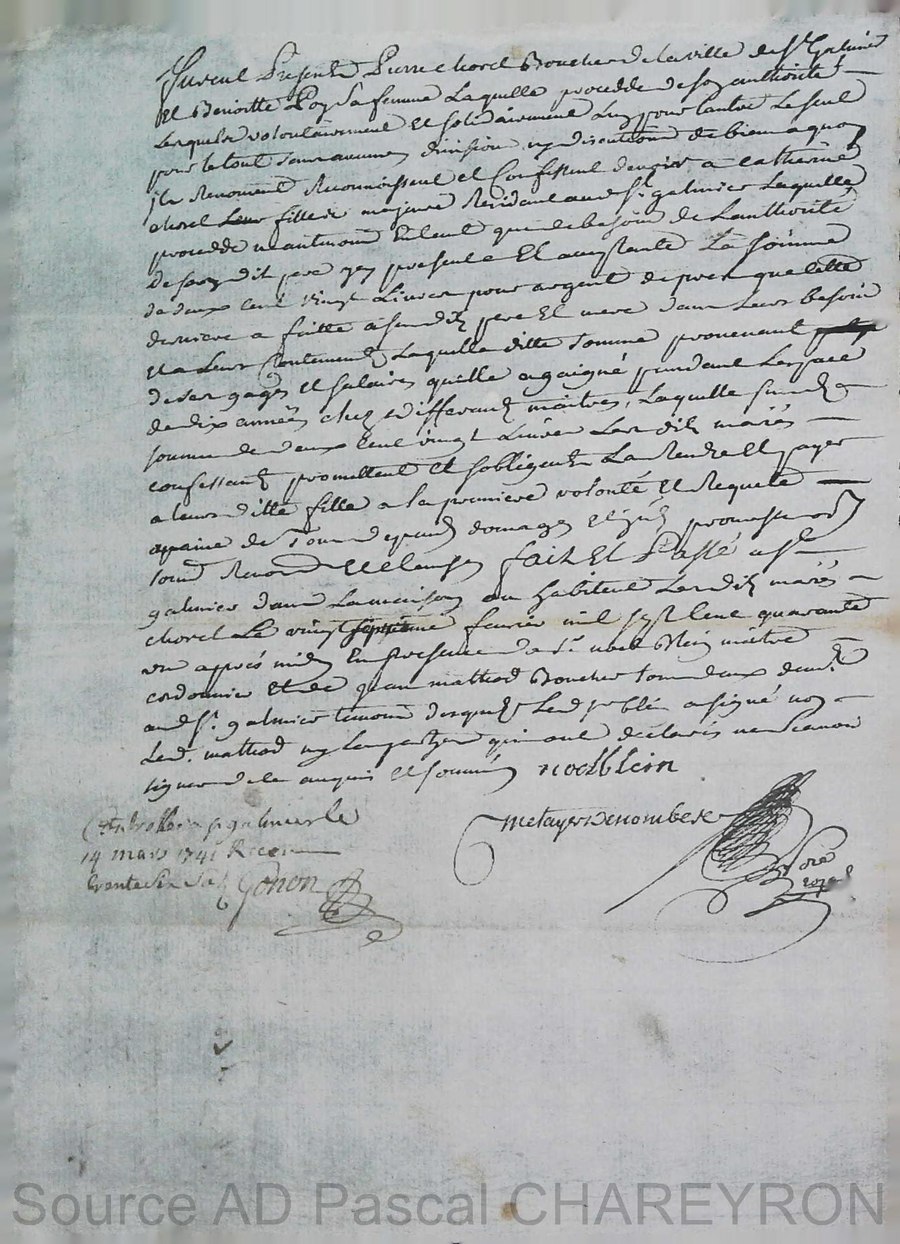 Furent Presents Pierre chorel Boucher de la ville de St. Galmier
Et Benoitte Poy Sa femme Laquelle procedde de Son authorité
Lesquels volontairement Et solidairement L'un pour l'autre Le seul
pour le tout sans aucune division ny discution de biens a quoy
ils Renoncent Reconnoissent et Confessent devoir a Catherine
chorel Leur fille majeure Residant aud St. galmier Laquelle
procedde maintenant Entant que de besoin de L'authorité
de son dit pere icy present Et acceptante La somme
de deux cent vingt Livres pour argent de prest que cette
derniere a faitte a sesdits pere Et mere dans Leurs besoin
Et a Leur Contentement Laquelle ditte somme provenant
de ses gages Et salaires quelle a gaigné pendant L'espace
de dix années chez differants maitres, Laquelle susd.
somme de deux Cent vingt Livres Lesdits mariés
confessants promettent et s'obligent La Rendre Et payer
a leurditte fille a la premiere volonté Et Requete
apaine de Tous depends domages
Renon Et clauses fait Et Passé a St.
galmier dans La maison ou habitent Lesdits mariés
chorel Le vingt septieme fevrier mil sept Cent quarante
un apres midy En presence de Sr. noel Blein maitre
cordonnier Et de jean mathad Boucher tous deux dem.
aud St. galmier temoins desquels Led Sr blein a signé non
Led. mathad ny Les parties qui ont declarés ne Scavoir
signer de ce enquis Et sommés noelblein
Metayer Denombese
Controllé a St galmier le
14 mars 1741 Receu
trente six sols Gonon
Nore
royal
Source AD Pascal CHAREYRON